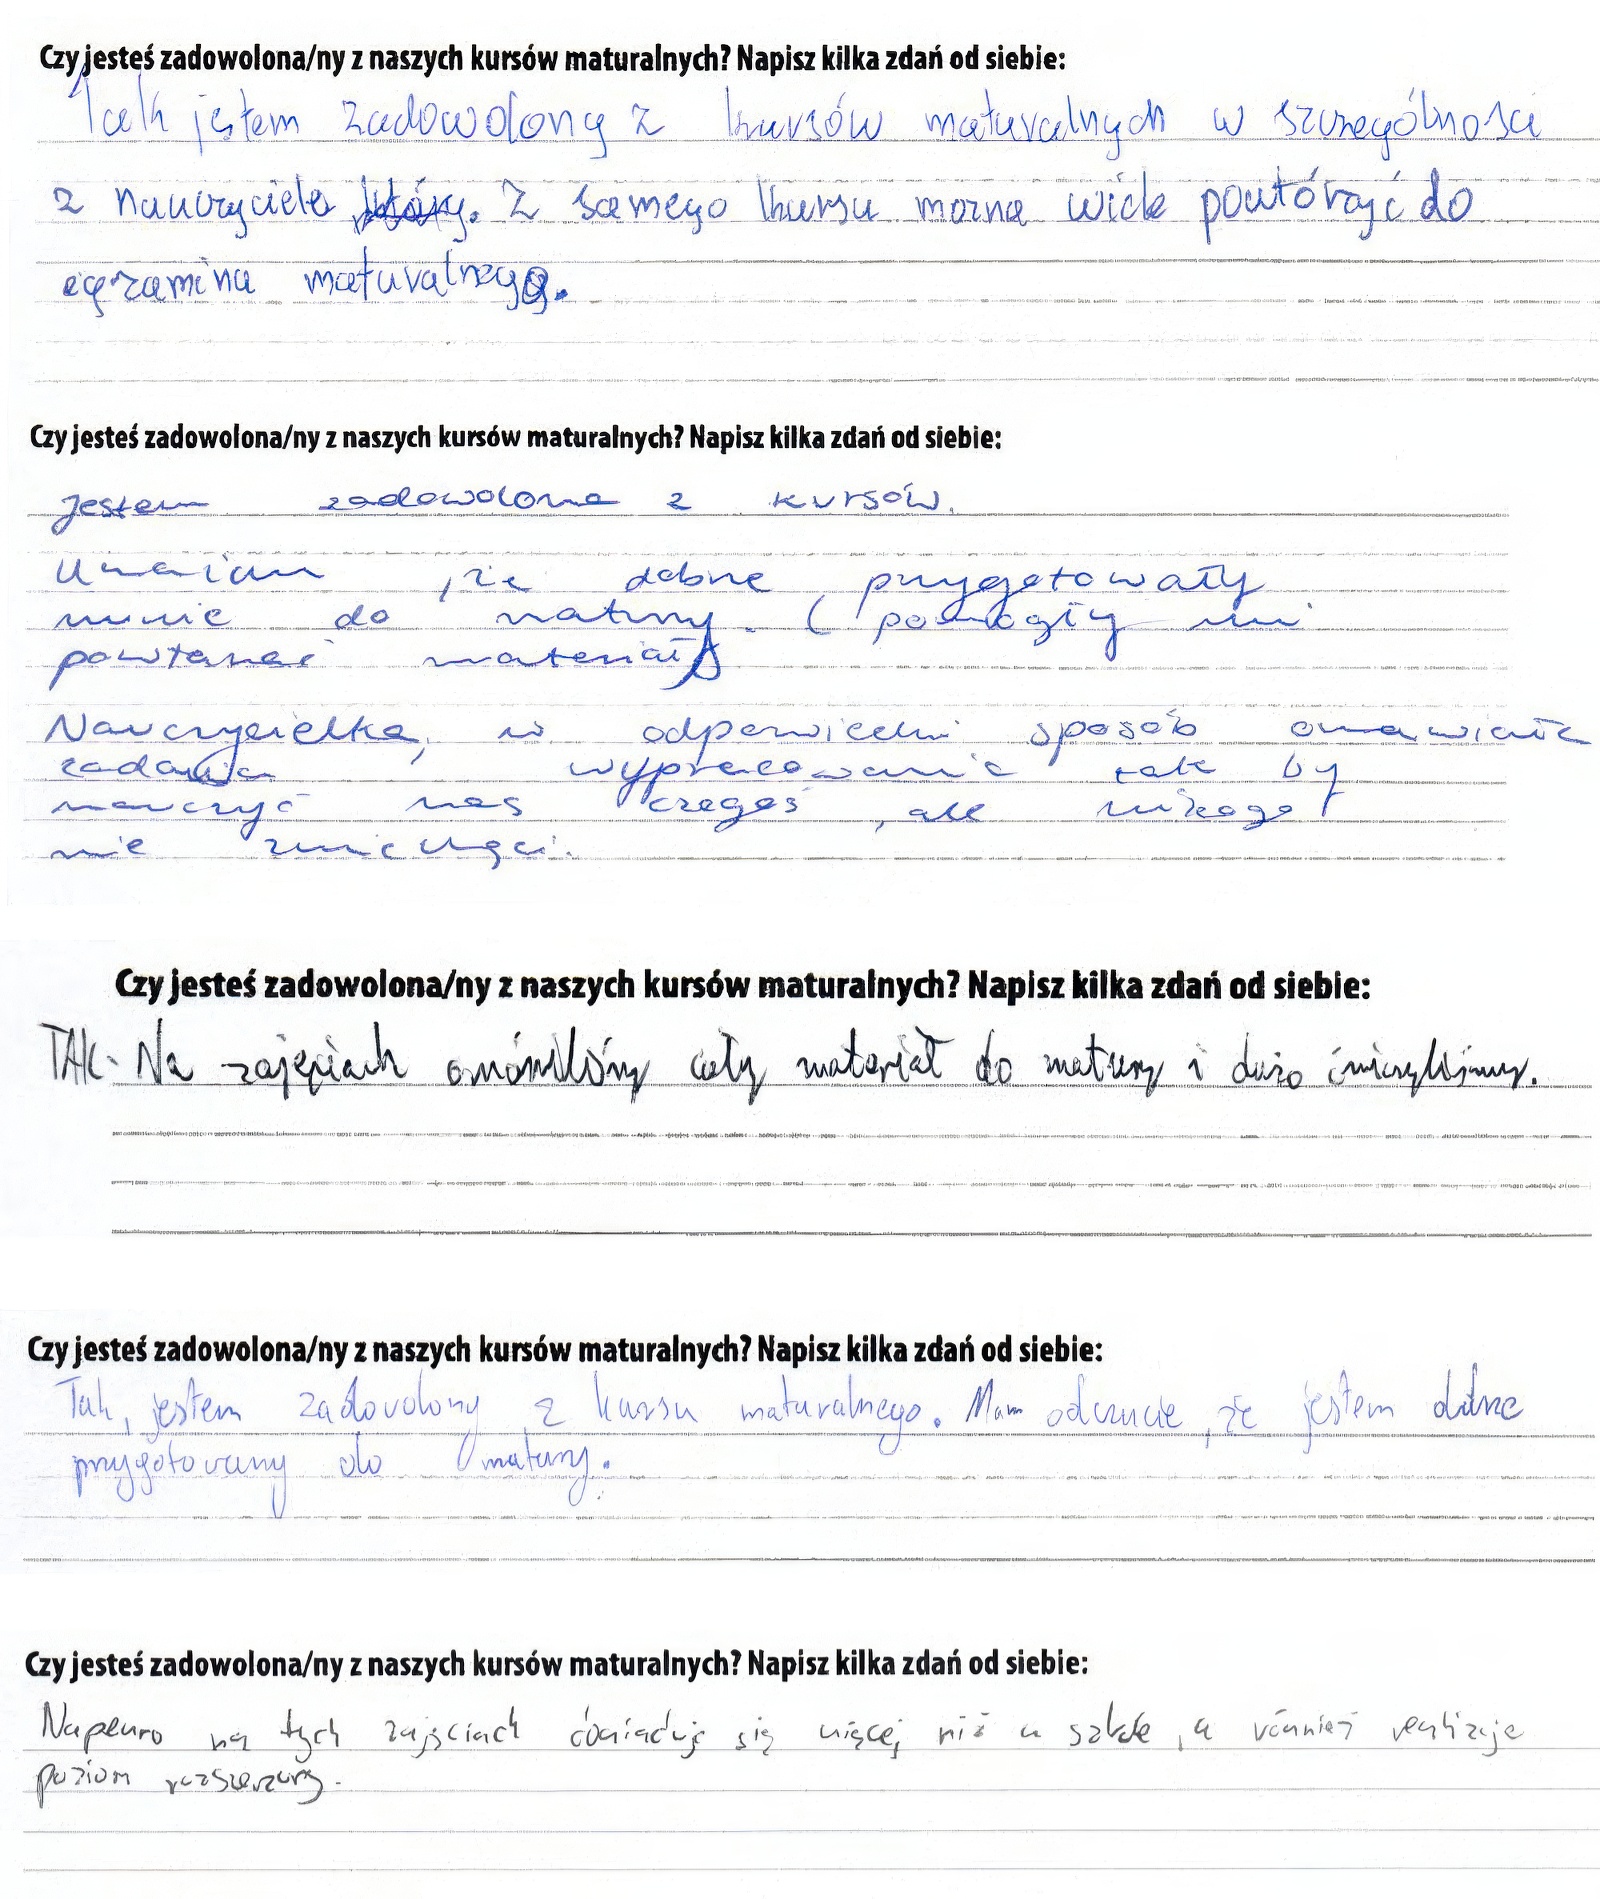 Czy jesteś zadowolona/ny z naszych kursów maturalnych? Napisz kilka zdań od siebie:
Tak jestem zadowolony z kursów maturalnych w szczególności
z nauczyciela. Z samego kursu można wiele powtórzyć do
egzaminu maturalnego.
Czy jesteś zadowolona/ny z naszych kursów maturalnych? Napisz kilka zdań od siebie:
Jestem zadowolona z kursów.
Uważam, że dobrze przygotowały
mnie do matury. (pomogły mi
powtarzać materiał)
Nauczycielka, w odpowiedni sposób omawiała
zadania wypracowania tak by
nauczyć nas czegoś, ale nikogo
nie zniechęci.
Czy jesteś zadowolona/ny z naszych kursów maturalnych? Napisz kilka zdań od siebie:
TAK. Na zajęciach omówiliśmy cały materiał do matury i dużo ćwiczyliśmy.
Czy jesteś zadowolona/ny z naszych kursów maturalnych? Napisz kilka zdań od siebie:
Tak, jestem zadowolony z kursu maturalnego. Mam odczucie, że jestem dobrze
przygotowany do matury.
Czy jesteś zadowolona/ny z naszych kursów maturalnych? Napisz kilka zdań od siebie:
Na pewno na tych zajęciach dowiaduję się więcej niż w szkole, a również realizuje
poziom rozszerzony.